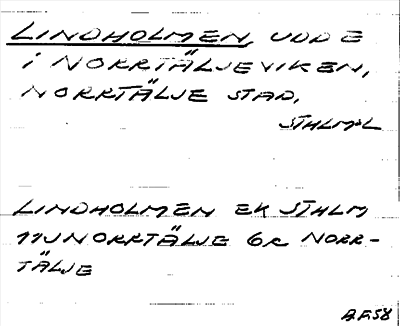 LINDHOLMEN, UDDE
I NORRTÄLJEVIKEN,
NORRTÄLJE STAD,
STHLMSL
LINDHOLMEN EK STHLM
11J NORRTÄLJE 6c NORR-
TÄLJE
A.F.58